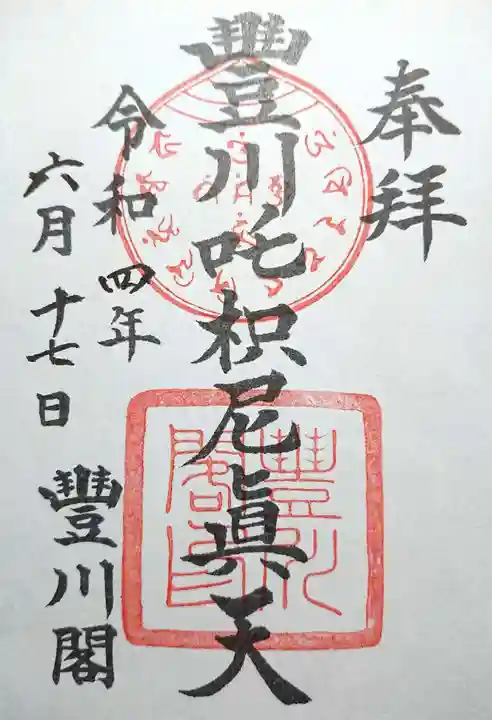 奉拝
豐川吒枳尼眞天
令和四年
六月十七日
豐川閣
豐川
閣印